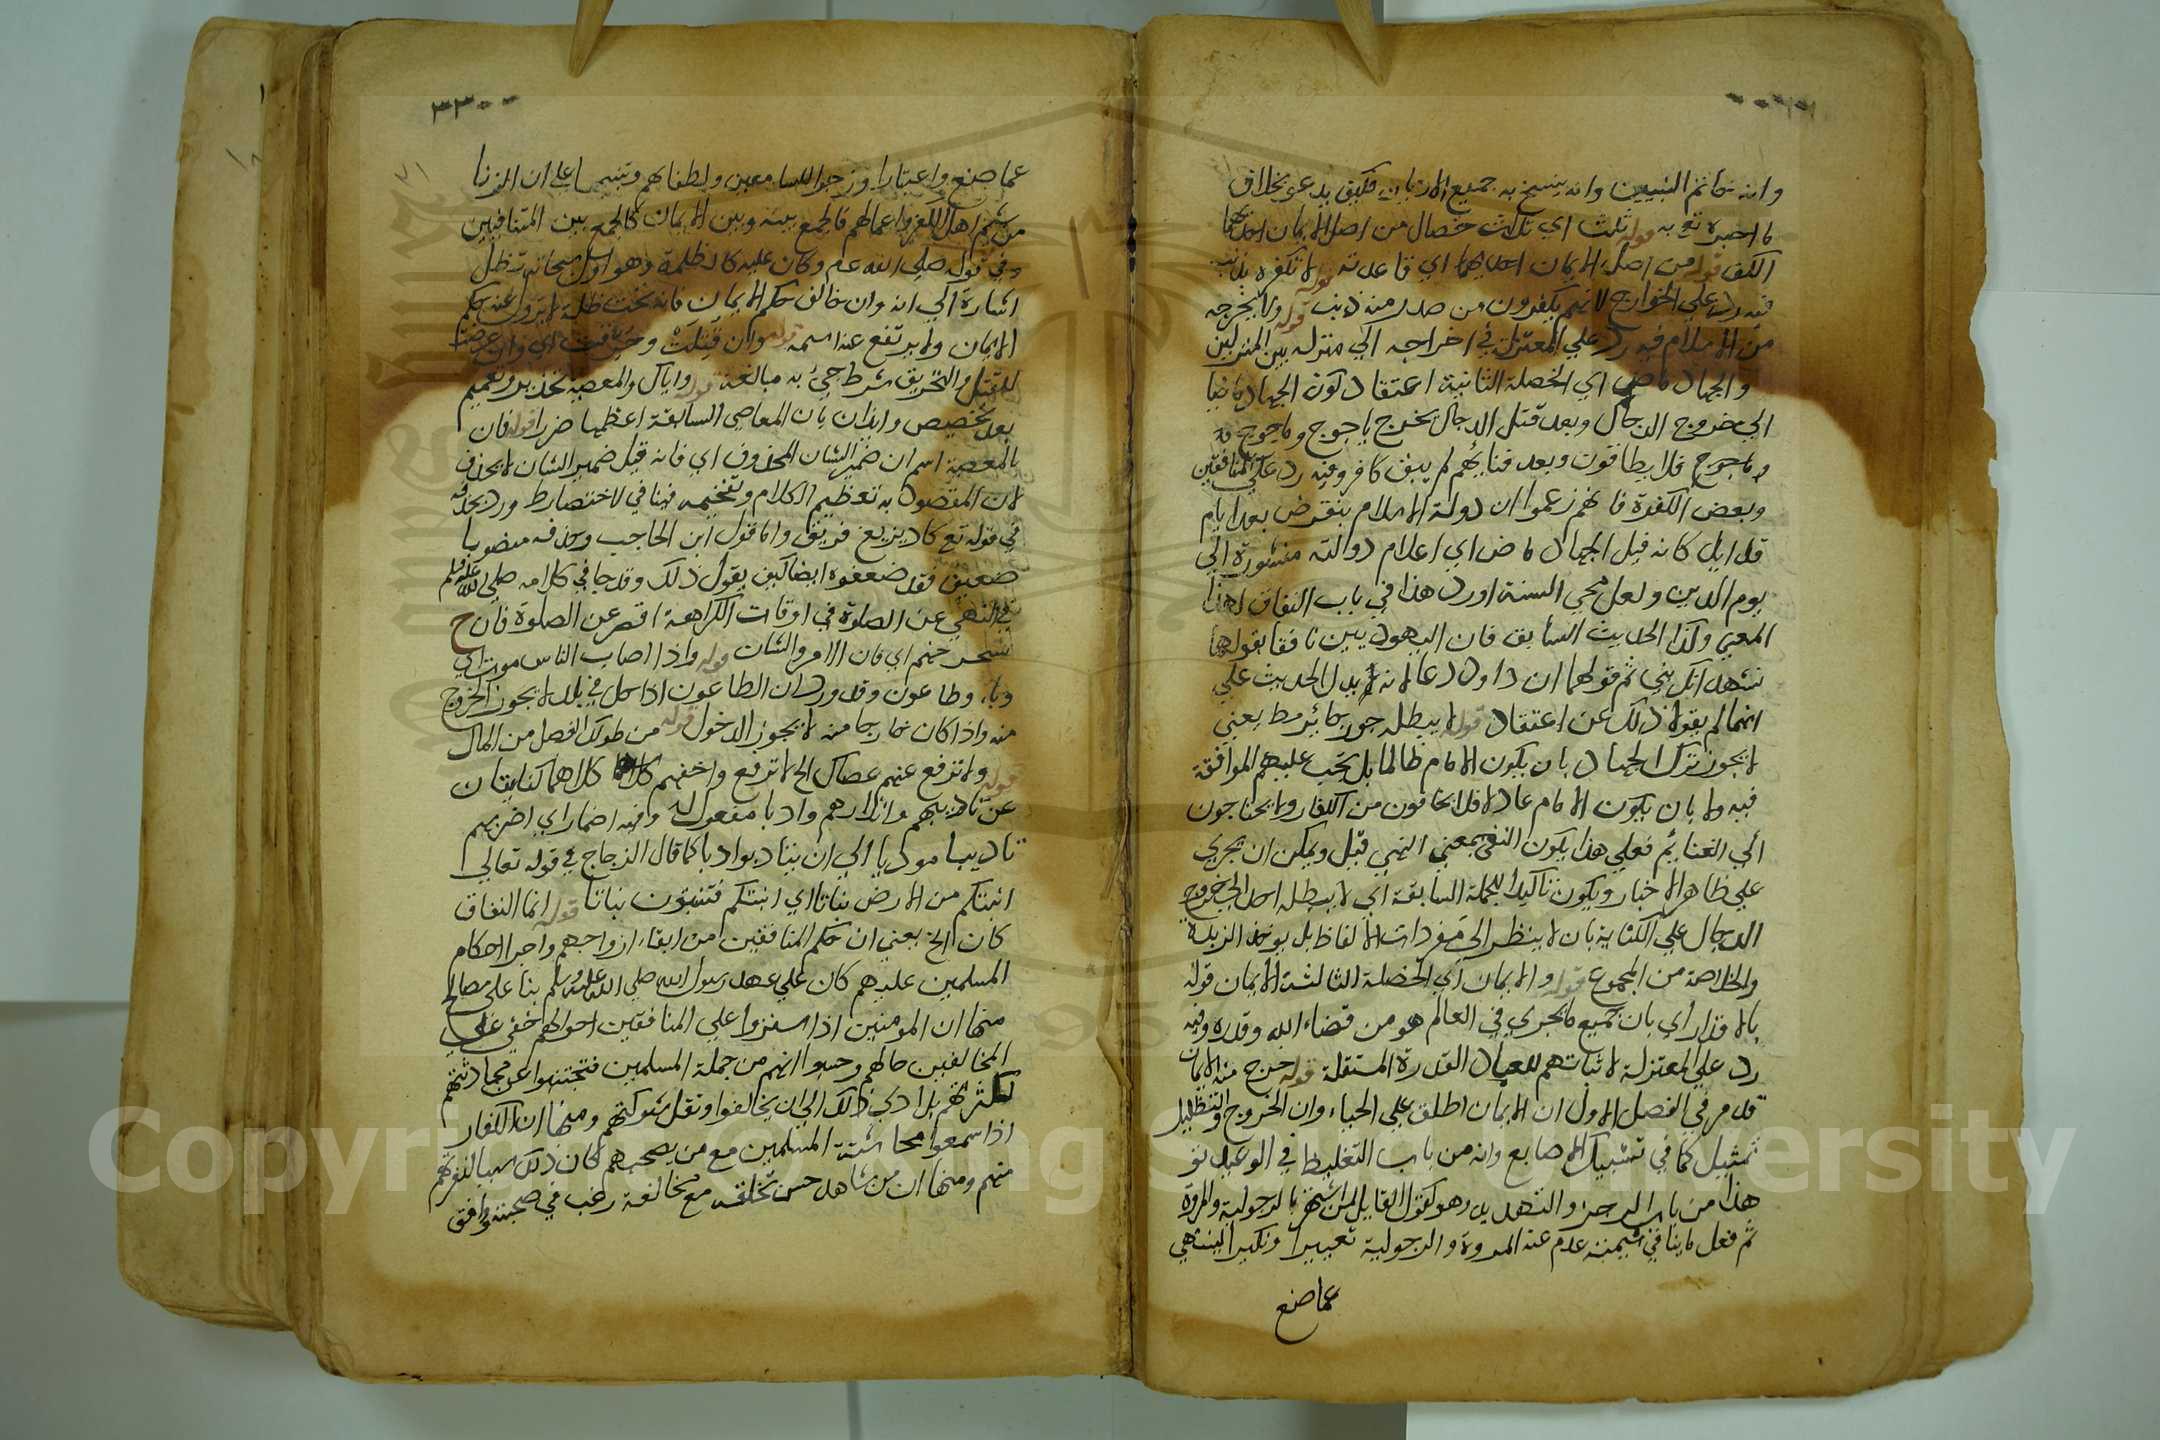 وانه خاتم النبيين وانه ينسخ به جميع الاديان فكيف يدعو بخلاف
ما اخبره تع به قوله ثلث اي ثلاث خصال من اصل الايمان احديها
الكف قوله من اصل الايمان احديهما اي قاعدته قوله لا تكفره بذنب
فيه رد علي الخوارج لانهم يكفرون من صدر منه ذنب قوله ولا يخرجه
من الاسلام فيه رد علي المعتزلة في اخراجه الي منزله بين المنزلتين
والجهاد ماض اي الخصلة الثانية اعتقاد كون الجهاد ماضيا
الي خروج الدجال وبعد قتل الدجال يخرج ياجوج وماجوج
وماجوج فلا يطاقون وبعد فنائهم لم يبق كافر وفيه رد علي المنافقين
وبعض الكفرة فانهم زعموا ان دولة الاسلام ينقرض بعد ايام
قلايل كانه قيل الجهاد ماض اي اعلام دولته منشورة الي
يوم الدين ولعل محي السنة اورد هذا في باب النفاق لهذا
المعني وكذا الحديث السابق فان اليهوديين نافقا بقولهما
نشهد انك نبي ثم قولهما ان داود دعا لانه يدل الحديث علي
انهما لم يقولا ذلك عن اعتقاد قوله لا يبطله جور جائر مط يعني
لا يجوز ترك الجهاد بان يكون الامام ظالما بل يجب عليهم الموافقة
فيه ولا بان يكون الامام عادلا فلا يخافون من الكفار ولا يحتاجون
الي الغنايم فعلي هذا يكون النفي بمعني النهي قيل ويمكن ان يجري
علي ظاهر الاخبار ويكون تاكيدا للجملة السابقة اي لا يبطله احد الي خروج
الدجال علي الكناية بان لا ينظر الي مفردات الالفاظ بل يوخذ الزبدة
والخلاصة من المجموع قوله والايمان اي الخصلة الثالثة الايمان قوله
بالاقدار اي بان جميع ما يجري في العالم هو من قضاء الله وقدره وفيه
رد علي المعتزلة لاثباتهم للعباد القدرة المستقلة قوله خرج منه الايمان
قد مر في الفصل الاول ان الايمان اطلق علي الحياء وان الخروج والتظليل
تمثيل كما في تشبيك الاصابع وانه من باب التغليظ في الوعيد تو
هذا من باب الزجر والتهديد وهو كقول القايل لمن اشتهر بالرجولية والمروة
ثم فعل ما ينافي شيمته عدم عنه المروة والرجولية تعييرا وتكيرا لينتهي
عما صنع
٣٣٠
عما صنع واعتبارا وزجرا للسامعين ولطفا لهم وتنبيها علي ان الزنا
من شيم اهل الكفر واعمالهم فالجمع بينه وبين الايمان كالجمع بين المتنافيين
وفي قوله صلي الله عم وكان عليه كالظلمة وهو اول سحابة تظل
اشارة الي انه وان خالف حكم الايمان فانه تحت ظله لا يزول عنه حكم
الايمان ولا يرتفع عنه اسمه قوله وان قتلت وحرقت اي وان عرضت
للقتل والتحريق شرط جئ به مبالغة قوله واياك والمعصية تحذير وتعميم
بعد تخصيص وايذان بان المعاصي السابقة اعظمها ضررا قوله فان
بالمعصية اسم ان ضمير الشان المحذوف اي فانه قيل ضمير الشان لا يحذف
لان المقصود به تعظيم الكلام وتفخيمه فينافي الاختصار ط ورد بحذفه
في قوله تع كاد يزيغ فريق واما قول ابن الحاجب وحذفه منصوبا
ضعيف فقد ضعفوه ايضا كيف يقول ذلك وقد جا في كلامه صلي الله عليه وسلم
في النهي عن الصلوة في اوقات الكراهة اقصر عن الصلوة فان ح
تسجر جهنم اي فان الامر والشان قوله واذا اصاب الناس موت اي
وباء وطاعون وقد ورد ان الطاعون اذا حل في بلد لا يجوز الخروج
منه واذا كان خارجا منه لا يجوز الدخول قوله من طولك الفضل من المال
قوله ولا ترفع عنهم عصاك الخ لا ترفع واخفهم كلاهما كنايتان
عن تاديبهم وانذارهم وادبا مفعول له وفيه اضمار اي اضربهم
تاديبا موديا الي ان يتادبوا ادبا كما قال الزجاج في قوله تعالي
انبتكم من الارض نباتا اي انبتكم فتنبتون نباتا قوله انما النفاق
كان الخ يعني ان حكم المنافقين من ابقاء ازواجهم واجرا احكام
المسلمين عليهم كان علي عهد رسول الله صلي الله عليه وسلم بنا علي مصالح
منها ان المومنين اذا ستروا علي المنافقين احوالهم خفي علي
المخالفين حالهم وحسبوا انهم من جملة المسلمين فيجتنبوا عن محادثتهم
لكثرتهم بل ادي ذلك الي ان يخافوا وتقل شوكتهم ومنها ان الكفار
اذا سمعوا مخاشنة المسلمين مع من يصحبهم كان ذلك سببا لنفرتهم
منهم ومنها ان من شاهد حسن تخلقه مع مخالفه رغب في صحبته ووافق
Copyright © King Saud University